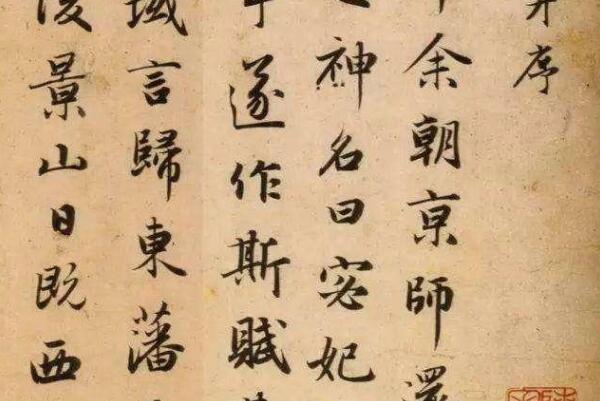 并序
余朝京師還
神名曰宓妃
遂作斯賦
域言歸東藩
陵景山日既西